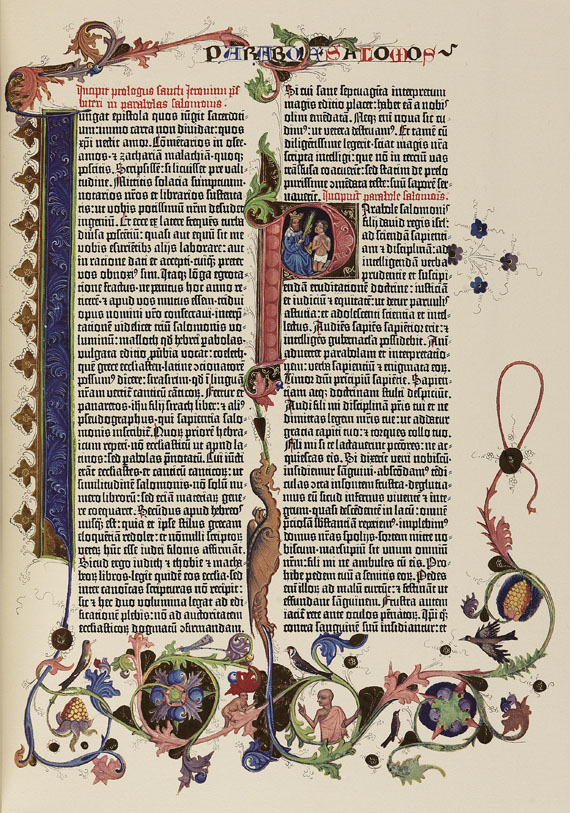 PARABOLE SALOMONIS
Incipit prologus sancti Jeronimi
in parabolas salomonis.
Iungat epistola quos iungit sacerdoti-
um: immo carta non dividat: quos
xpi nectit amor. Cōmētarios in osee.
amos. et zachariam malachiā. quoq;
poscitis. Scripsissē: si licuisset pre vali-
tudine. Mittitis solacia sumptuum.
notarios nr̄os et librarios sustenta-
tis: ut vobis potissimū nr̄m desudet
ingeniū. Et ecce ex latere frequēs turba
diversa poscētiū: quasi aut equū sit me
vobis esurietib; alijs laborare: aut
in ratione dati et accepti. cuiq; preter
vos obnoxi⁹ sim. Itaq; lōga egrota-
tione fractus. ne penitus hoc anno re-
ticerē. et apud vos mutus essem. tridui
opus nomini vr̄o consecravi. interp̄-
tationē videlicet triū salomonis vo-
luminū: masloth qd̄ hebrei pabolas.
vulgata editio pverbia vocat: coeleth.
quē grece ecclesiastē. latine
possum⁹ dicere: sirasirim. qd̄ ī linguā
nr̄am vertit canticū canticor. Fertur et
panaretos. ihu filij sirach liber: et ali⁹
pseudographus. qui sapientia salo-
monis inscribit. Quoȝ priorē hebra-
icum repperi. nō ecclesiasticū ut apud la-
tinos: sed pabolas p̄notatū. Cui iūcti
erāt ecclesiastes. et canticū canticor: ut
similitudinē salomonis. nō solū nu-
mero libror: sed etiā materiar gene-
re coequaret. Secūdus apud hebreos
nusq̄ est: quia et ipse stilus grecam
eloquētiā redolet: et nonulli scriptor
veterū hūc esse iudei filonis affirmāt.
Sicud ergo iudith et thobie et macha-
beor libros. legit quidē eos ecclīa. sed
inter canonicas scripturas nō recipit:
sic et hec duo volumina legat ad edi-
ficationē plebis: nō ad auctoritatem
ecclesiasticor dogmatū cōfirmandam.
Si cui sane septuaginta interpretum
magis editio placet: habet eā a nobis
olim emēdatā. Neq; eni nova sic cu-
dim⁹: ut vetera destruam⁹. Et tamē cū
diligētissime legerit. sciat magis nr̄a
scripta intelligi: que nō in terciū vas
trāsfusa coacuerīt: sed statim de prelo
purissime cōmēdata teste: suū saporē ser-
vaverīt. Incipiūt parabole salomonis.
Parabole salomonis
filij david regis isrl̄:
ad sciendā sapienti-
am et disciplinā: ad
intelligendā verba
prudentie et suscipi-
endā eruditationē doctrine: iusticiā
et iudiciū et equitatē: ut detur parvulis
astutia: et adolescenti scientia et intel-
lectus. Audiēs sapiēs sapiētior erit: et
intelligēs gubernacula possidebit. Ani-
advertet parabolam et interpretatio-
nem: verba sapientiū et enigmata eor.
Timor dn̄i principiū sapiētie. Sapien-
tiam atq; doctrinam stulti despiciūt.
Audi fili mi disciplinā pr̄is tui et ne
dimittas legem mr̄is tue: ut addatur
gratia capiti tuo: et torques collo tuo.
Fili mi si te lactaverint pctōres: ne ac-
quiescas eis. Si dixerīt veni nobiscū.
insidiemur sāguini. abscōdam⁹ tedi-
culas ꝯtra insontem frustra. deglutia-
mus eū sicud infernus viventē et inte-
grum. quasi descēdentē in lacū: omnē
p̄ciosā substātiā reperiem⁹. implebim⁹
domus nr̄as spolijs. sortem mitte no-
biscum. marsupiū sit unum omnium
nr̄m: fili mi ne ambules cū eis. Pro-
hibe pedem tuū a semitis eor. Pedes
eni illor ad malū currūt: et festināt ut
effundant sanguinem. Frustra autem
iacit rete ante oculos pēnator. Ipi q̄;
contra sanguinē suū insidiantur: et